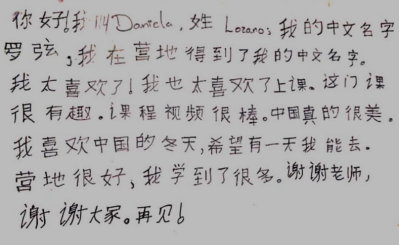 你好!我叫Daniela,姓 Lozano;我的中文名字
罗弦,我在营地得到了我的中文名字。
我太喜欢了!我也太喜欢了上课。这门课
很有趣。课程视频很棒。中国真的很美。
我喜欢中国的冬天,希望有一天我能去。
营地很好,我学到了很多。谢谢老师,
谢谢大家。再见!